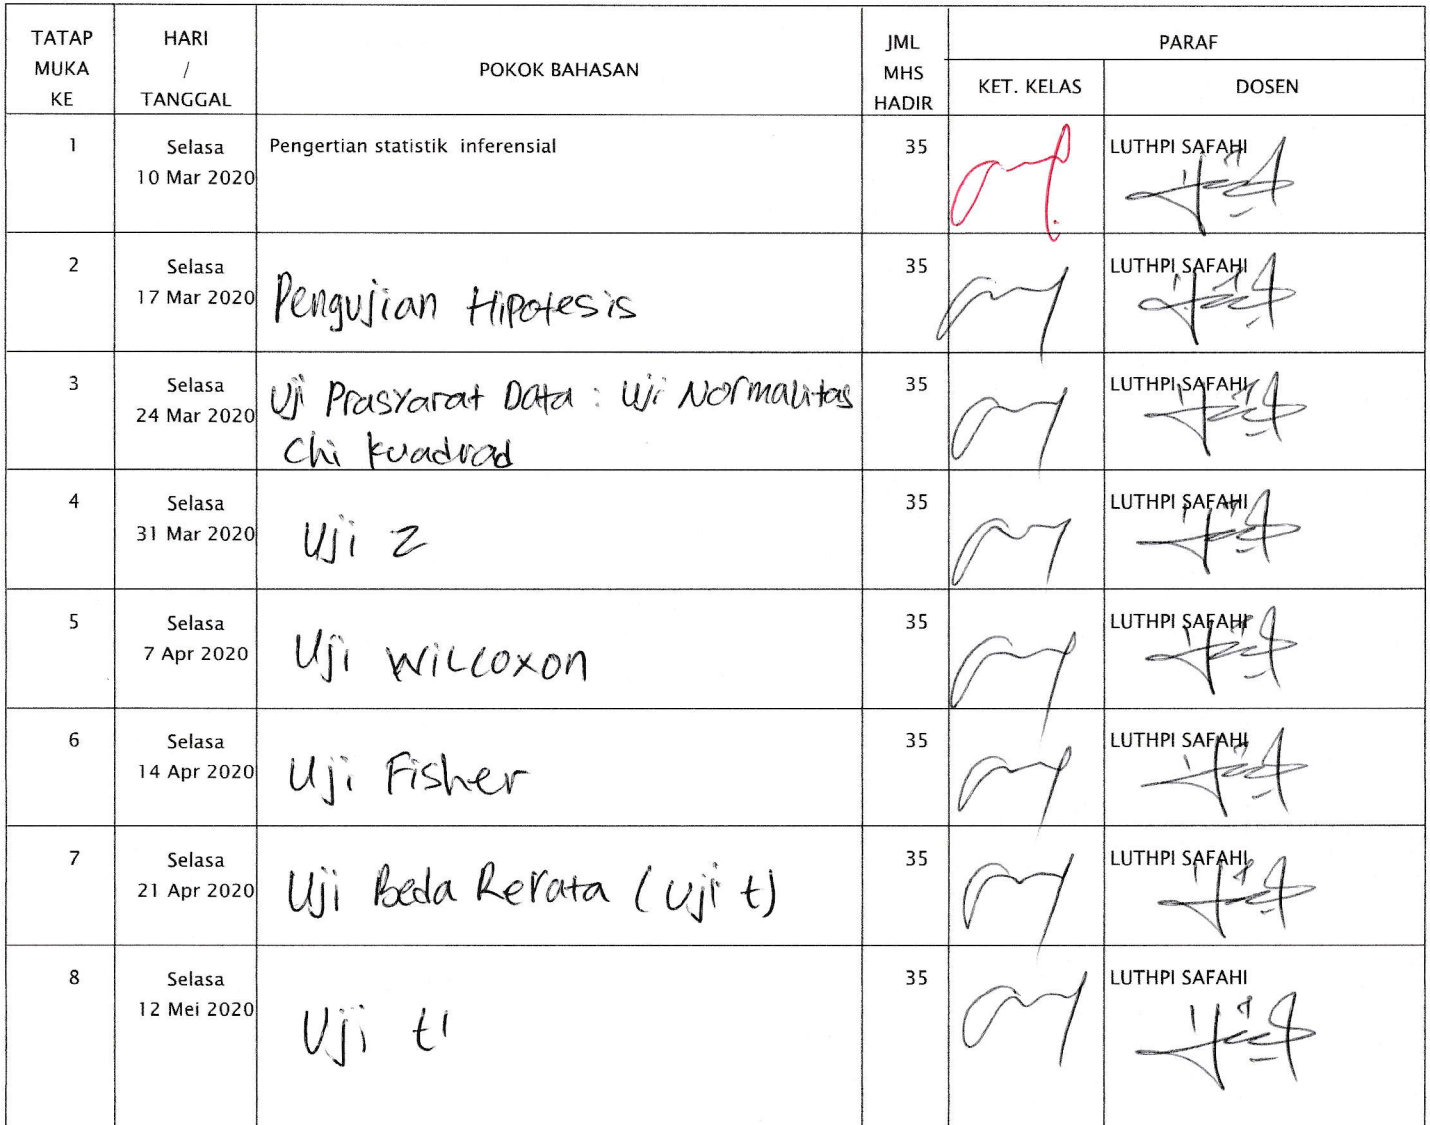 TATAP MUKA KE
HARI / TANGGAL
POKOK BAHASAN
JML MHS HADIR
PARAF
KET. KELAS
DOSEN
1
Selasa
10 Mar 2020
Pengertian statistik inferensial
35
LUTHPI SAFAHI
2
Selasa
17 Mar 2020
Pengujian Hipotesis
35
LUTHPI SAFAHI
3
Selasa
24 Mar 2020
Uji Prasyarat Data : Uji Normalitas
Chi kuadrad
35
LUTHPI SAFAHI
4
Selasa
31 Mar 2020
Uji Z
35
LUTHPI SAFAHI
5
Selasa
7 Apr 2020
Uji Wilcoxon
35
LUTHPI SAFAHI
6
Selasa
14 Apr 2020
Uji Fisher
35
LUTHPI SAFAHI
7
Selasa
21 Apr 2020
Uji Beda Rerata (Uji t)
35
LUTHPI SAFAHI
8
Selasa
12 Mei 2020
Uji t'
35
LUTHPI SAFAHI